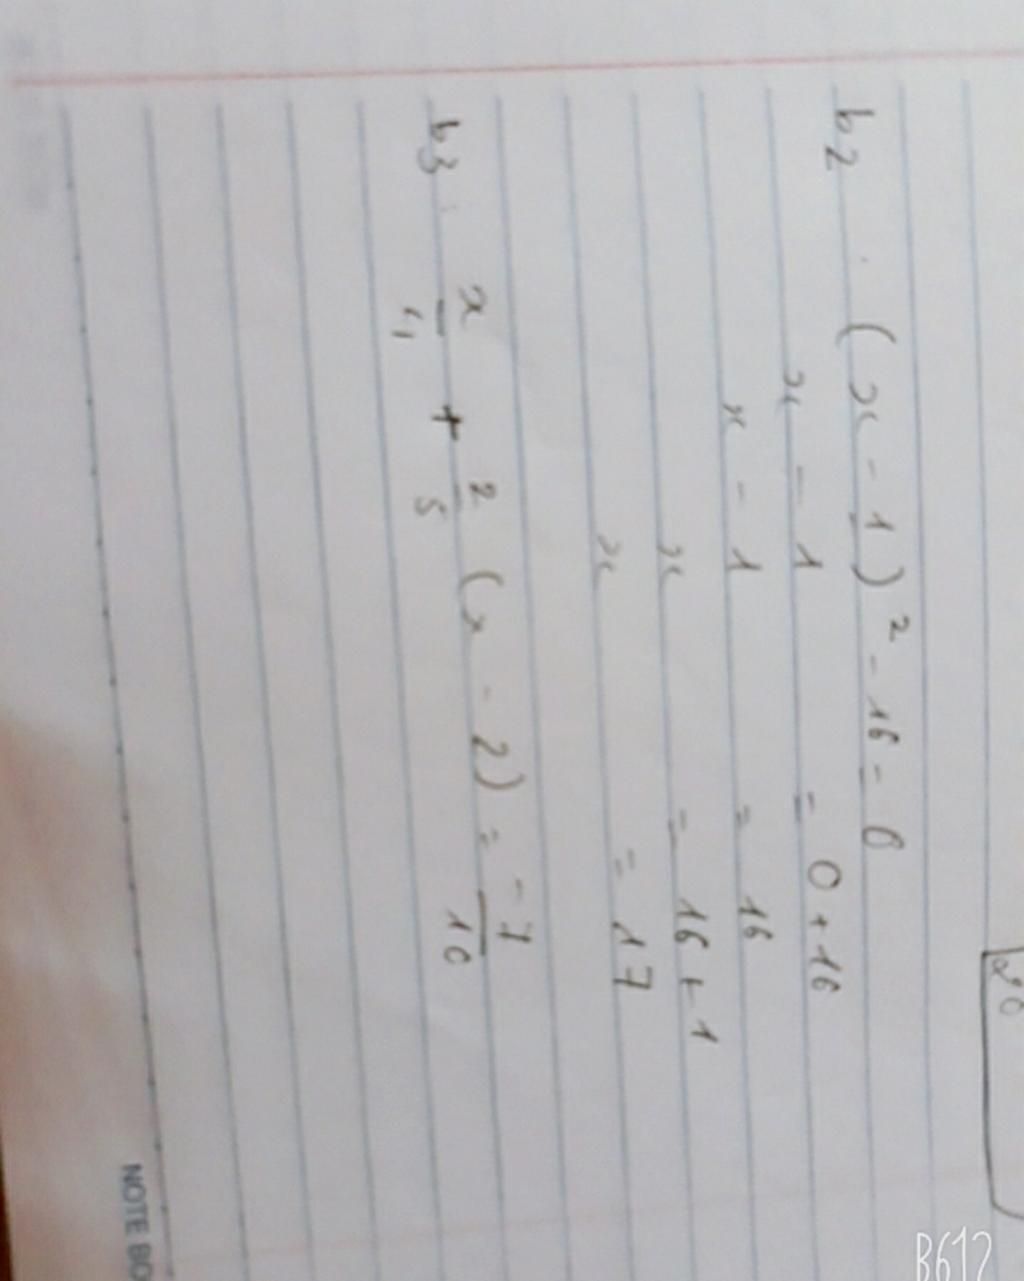 b2 . (x - 1)² - 16 = 0
x - 1 = 0 + 16
x - 1 = 16
x = 16 + 1
x = 17
b3. x/4 + 2/5 (x - 2) = -7/10
NOTE BO
B612